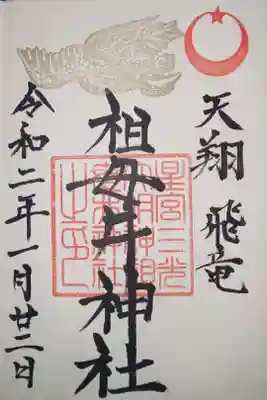 天翔 飛竜
祖母井神社
令和二年一月廿二日